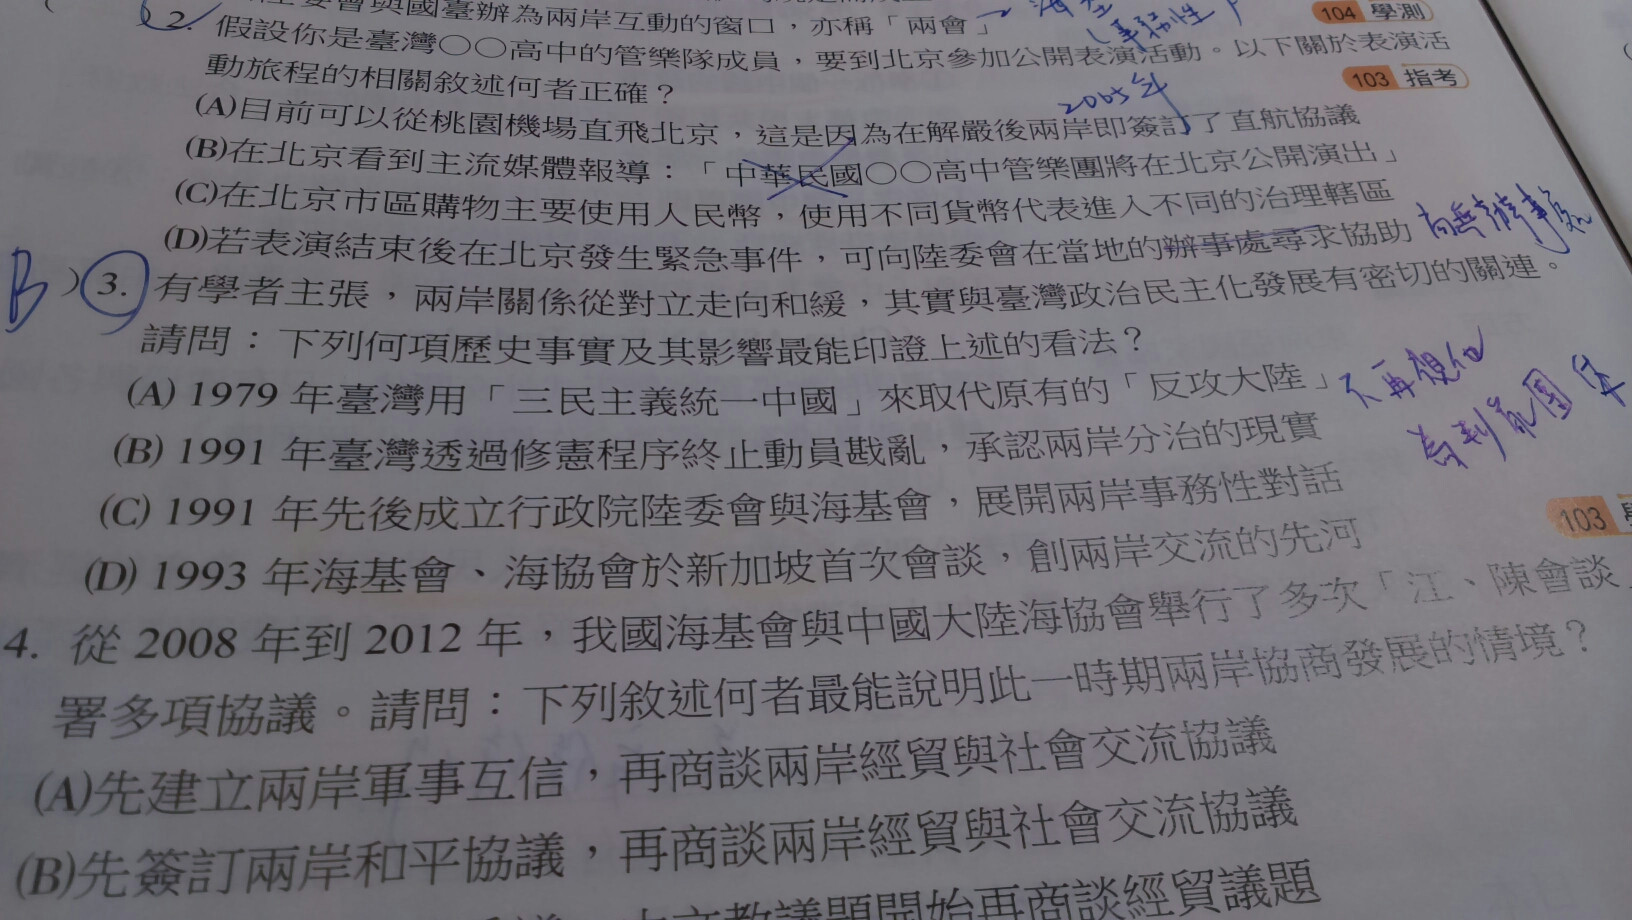 委會與國臺辦為兩岸互動的窗口，亦稱「兩會」
104 學測
2. 假設你是臺灣○○高中的管樂隊成員，要到北京參加公開表演活動。以下關於表演活
動旅程的相關敘述何者正確？
103 指考
2005年
(A)目前可以從桃園機場直飛北京，這是因為在解嚴後兩岸即簽訂了直航協議
(B)在北京看到主流媒體報導：「中華民國○○高中管樂團將在北京公開演出」
(C)在北京市區購物主要使用人民幣，使用不同貨幣代表進入不同的治理轄區
(D)若表演結束後在北京發生緊急事件，可向陸委會在當地的辦事處尋求協助
尚無辦事處
B ) 3. 有學者主張，兩岸關係從對立走向和緩，其實與臺灣政治民主化發展有密切的關連。
請問：下列何項歷史事實及其影響最能印證上述的看法？
(A) 1979 年臺灣用「三民主義統一中國」來取代原有的「反攻大陸」
不再視他
為叛亂團
(B) 1991 年臺灣透過修憲程序終止動員戡亂，承認兩岸分治的現實
(C) 1991 年先後成立行政院陸委會與海基會，展開兩岸事務性對話
103
(D) 1993 年海基會、海協會於新加坡首次會談，創兩岸交流的先河
4. 從 2008 年到 2012 年，我國海基會與中國大陸海協會舉行了多次「江、陳會談」
署多項協議。請問：下列敘述何者最能說明此一時期兩岸協商發展的情境？
(A)先建立兩岸軍事互信，再商談兩岸經貿與社會交流協議
(B)先簽訂兩岸和平協議，再商談兩岸經貿與社會交流協議
文教議題開始再商談經貿議題